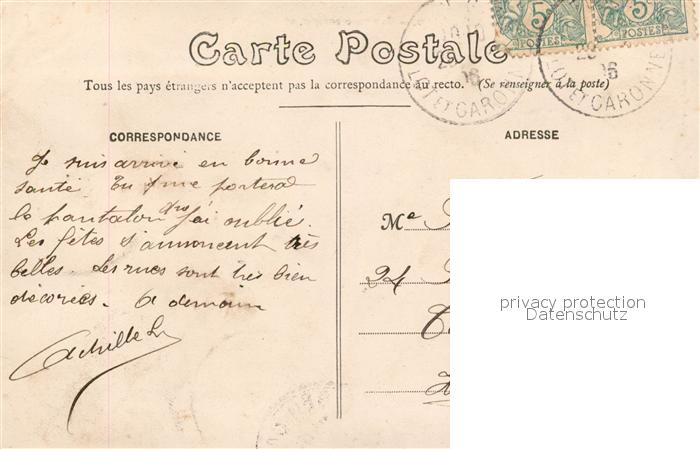 Carte Postale
Tous les pays étrangers n'acceptent pas la correspondance au recto. (Se renseigner à la poste)
CORRESPONDANCE
Je suis arrivé en bonne
santé. Tu me portera
le pantalon que j'ai oublié.
Les fêtes s'annoncent très
belles. Les rues sont très bien
décorées. A demain
Achille L
ADRESSE
Me
24
5 5
POSTES POSTES
LOT ET GARONNE
LOT ET GARONNE
privacy protection
Datenschutz